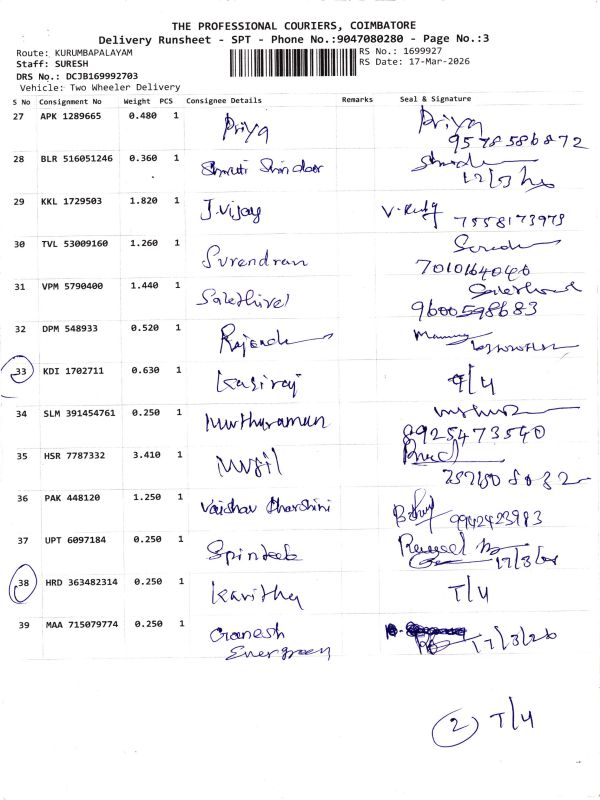 THE PROFESSIONAL COURIERS, COIMBATORE
Delivery Runsheet - SPT - Phone No.:9047080280 - Page No.:3
Route: KURUMBAPALAYAM
RS No.: 1699927
Staff: SURESH
RS Date: 17-Mar-2026
DRS No.: DCJB169992703
Vehicle: Two Wheeler Delivery
S No Consignment No Weight PCS Consignee Details Remarks Seal & Signature
27 APK 1289665 0.480 1 Priya Priya
9578586872
28 BLR 516051246 0.360 1 Shruti Shindar
29 KKL 1729503 1.820 1 J.Vijay
7558173973
30 TVL 53009160 1.260 1 Surendran
7010164040
31 VPM 5790400 1.440 1 Salethivel
9600598683
32 DPM 548933 0.520 1
33 KDI 1702711 0.630 1 Kasiraj T/4
34 SLM 391454761 0.250 1 Muthuraman
8925473540
35 HSR 7787332 3.410 1
36 PAK 448120 1.250 1 Vaishav Dharshini
9942423983
37 UPT 6097184 0.250 1
17/3/26
38 HRD 363482314 0.250 1 Kavitha T/4
39 MAA 715079774 0.250 1 Ganesh 17/3/26
Evergreen
2 T/4